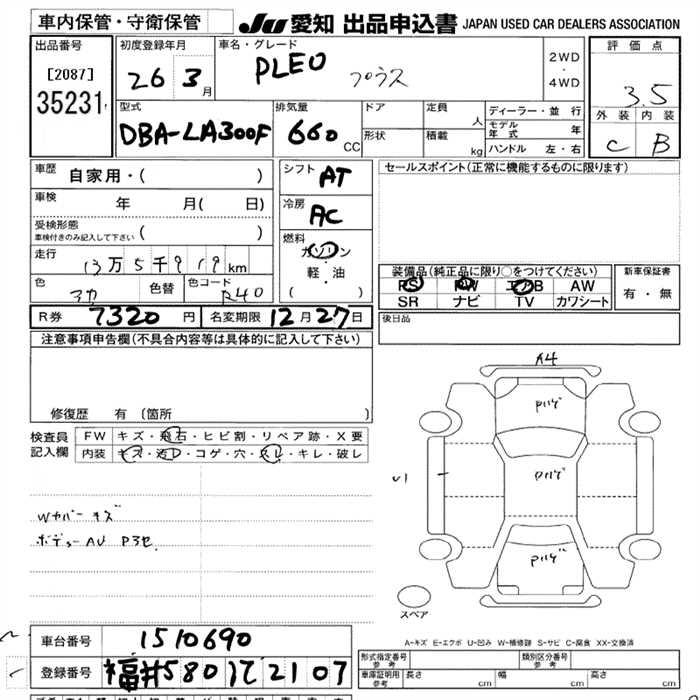 車内保管・守衛保管
JU 愛知 出品申込書 JAPAN USED CAR DEALERS ASSOCIATION
出品番号
[2087]
35231
初度登録年月
26 3月
車名・グレード
PLEO プラス
2WD
・
4WD
評価点
3.5
外装 内装
C B
型式
DBA-LA300F
排気量
660 CC
ドア
定員 人
形状
積載 kg
ディーラー・並行
モデル年式 年
ハンドル 左・右
車歴 自家用・( )
車検 年 月( 日)
受検形態
車検付きのみ記入して下さい ( )
走行
13万5千919km
色 色替 色コード
R40
シフト AT
冷房 AC
燃料
ガソリン
・
軽・油
( )
セールスポイント(正常に機能するものに限ります)
装備品(純正品に限り○をつけてください)
PS PW エアB AW
SR ナビ TV カワシート
新車保証書
有・無
後日品
R券 7320円 名変期限 12月27日
注意事項申告欄(不具合内容等は具体的に記入して下さい)
修復歴 有〔箇所 〕
検査員記入欄
FW キズ・飛石・ヒビ割・リペア跡・X要
内装 キズ・汚れ・コゲ・穴・スレ・キレ・破レ
Wカバーキズ
ボデーAU P3セ
A4
Pハゲ
U1
Pハゲ
Pハゲ
スペア
A-キズ E-エクボ U-凹み W-補修跡 S-サビ C-腐食 XX-交換済
車台番号 1510690
登録番号 福井580 て 2107
形式指定番号 類別区分番号
車庫証明用参考 長さ cm 幅 cm 高さ cm